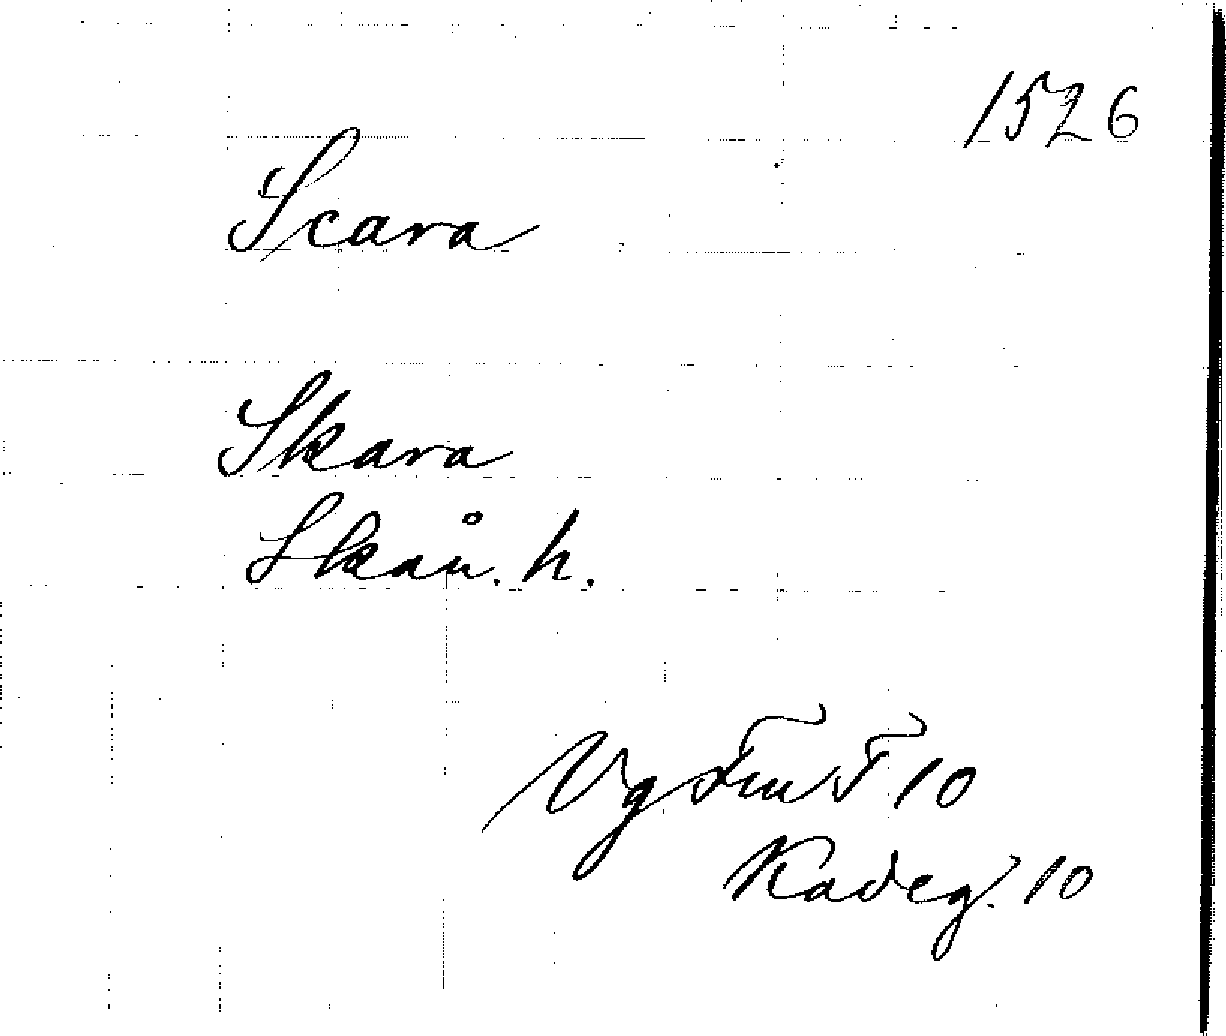 1526
Scara
Skara
Skån. h.
Vg FmF 10
Kadeg. 10